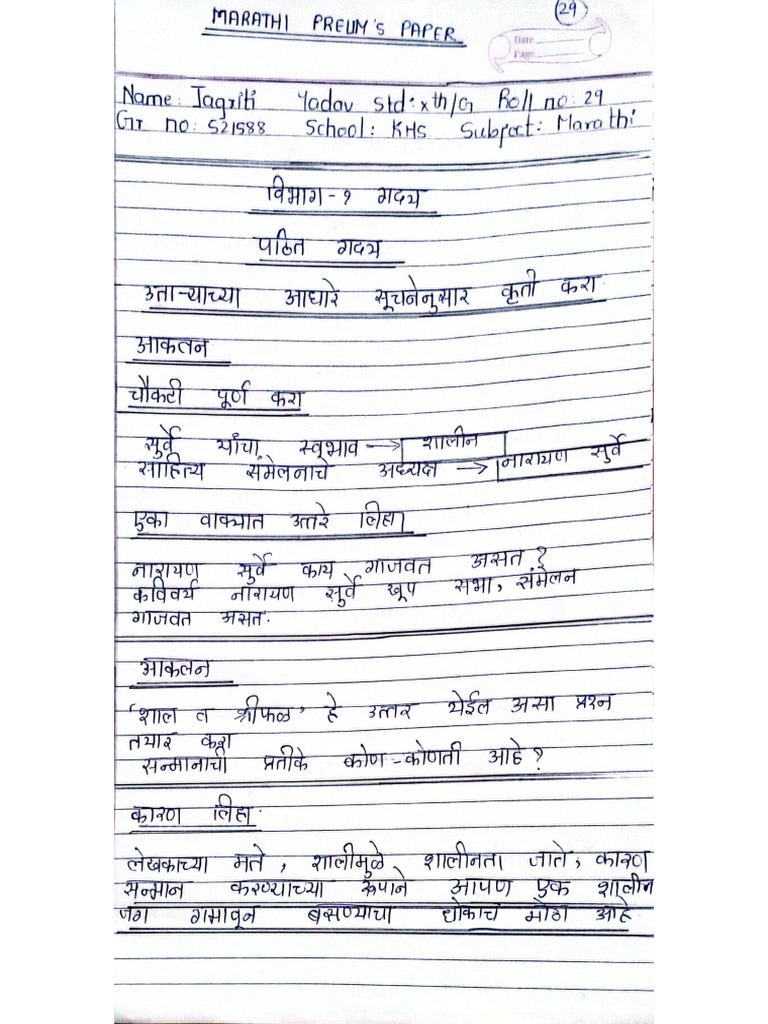 29
MARATHI PRELIM'S PAPER
Date
Page
Name: Jagriti Yadav Std: xth/G Roll no: 29
Gr no: 521588 School: KHS Subject: Marathi
विभाग-१ गद्य
पठित गद्य
उताऱ्याच्या आधारे सूचनेनुसार कृती करा.
आकलन
चौकटी पूर्ण करा
सुर्वे यांचा स्वभाव → शालीन
साहित्य संमेलनाचे अध्यक्ष → नारायण सुर्वे
एका वाक्यात उत्तरे लिहा
नारायण सुर्वे काय गाजवत असत?
कविवर्य नारायण सुर्वे खूप सभा, संमेलन
गाजवत असत.
आकलन
'शाल व श्रीफळ' हे उत्तर येईल असा प्रश्न
तयार करा
सन्मानाची प्रतीके कोण-कोणती आहे?
कारण लिहा.
लेखकाच्या मते, शालीमुळे शालीनता जाते, कारण
सन्मान करण्याच्या रूपाने आपण एक शालीन
जग गमावून बसण्याचा धोकाच मोठा आहे